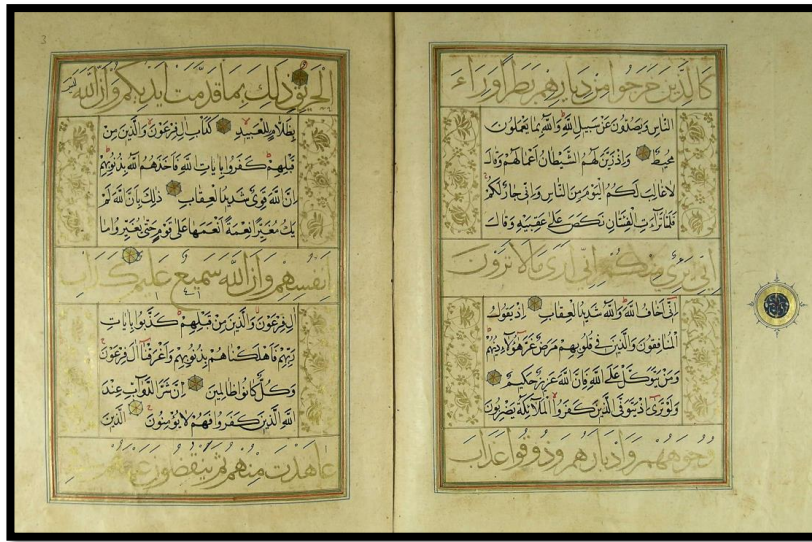 كالذين خرجوا من ديارهم بطرا ورءاء
الناس ويصدون عن سبيل الله والله بما يعملون
محيط واذ زين لهم الشيطان اعمالهم وقال
لا غالب لكم اليوم من الناس واني جار لكم
فلما تراءت الفئتان نكص على عقبيه وقال
اني بريء منكم اني ارى ما لا ترون
اني اخاف الله والله شديد العقاب اذ يقول
المنافقون والذين في قلوبهم مرض غر هؤلاء دينهم
ومن يتوكل على الله فان الله عزيز حكيم
ولو ترى اذ يتوفى الذين كفروا الملائكة يضربون
وجوههم وادبارهم وذوقوا عذاب
الحريق ذلك بما قدمت ايديكم وان الله ليس
بظلام للعبيد كداب ال فرعون والذين من
قبلهم كفروا بايات الله فاخذهم الله بذنوبهم
ان الله قوي شديد العقاب ذلك بان الله لم
يك مغيرا نعمة انعمها على قوم حتى يغيروا ما
بانفسهم وان الله سميع عليم كداب
ال فرعون والذين من قبلهم كذبوا بايات
ربهم فاهلكناهم بذنوبهم واغرقنا ال فرعون
وكل كانوا ظالمين ان شر الدواب عند
الله الذين كفروا فهم لا يؤمنون الذين
عاهدت منهم ثم ينقضون
3